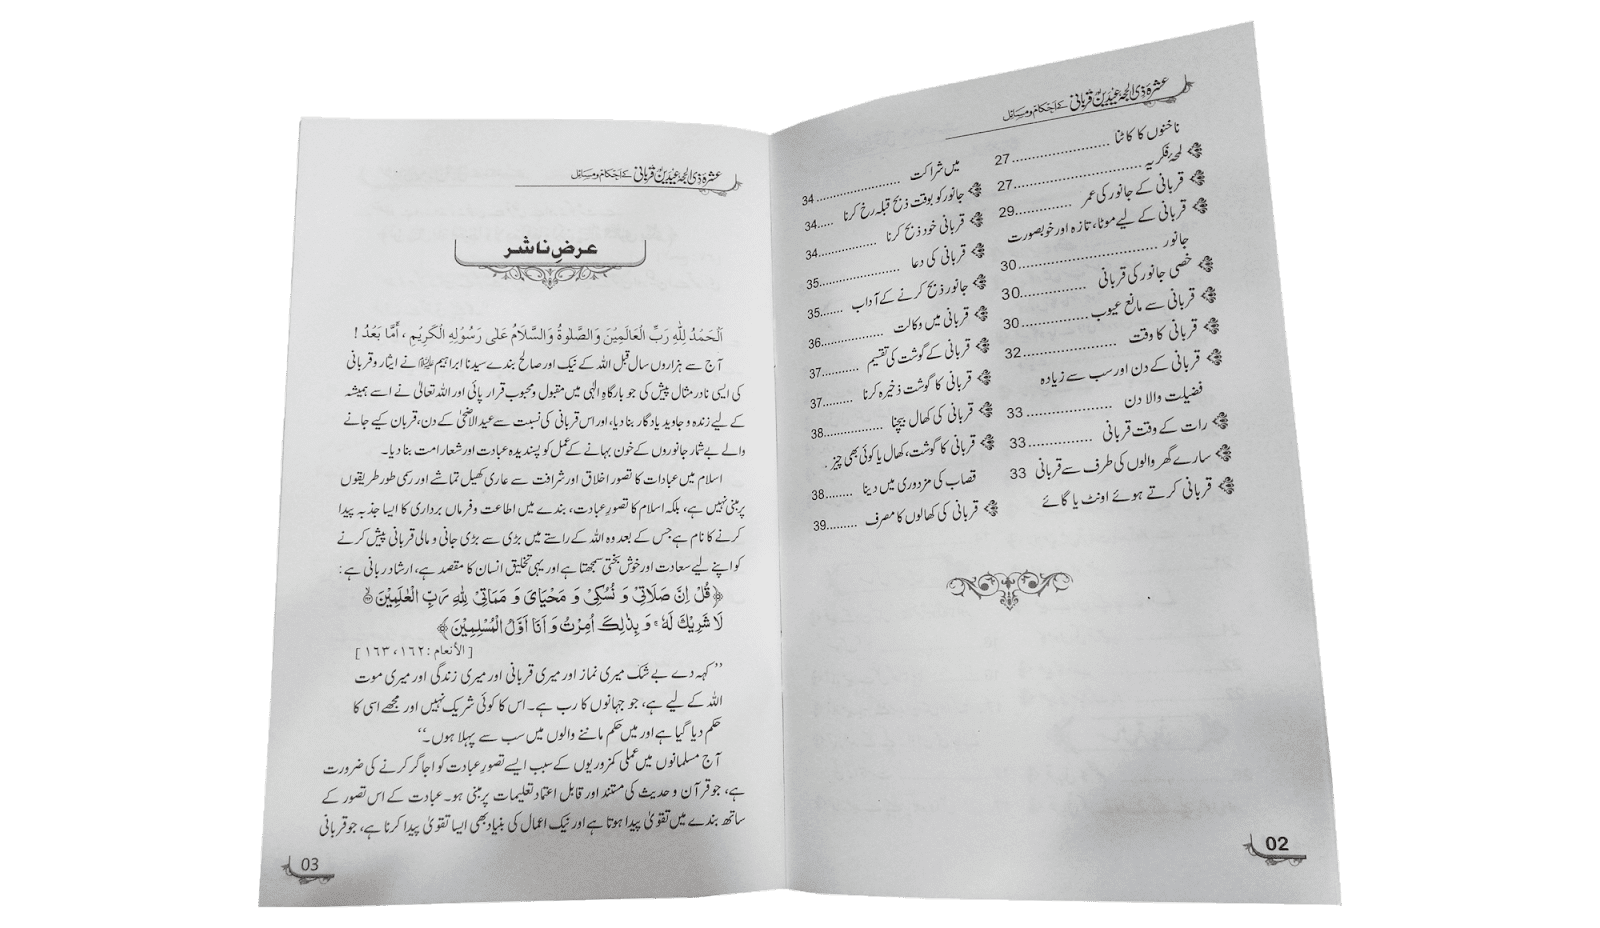 عشرہ ذی الحجہ عیدین قربانی کے احکام و مسائل
ناخنوں کا کاٹنا ........................ 27
لمحۂ فکریہ ........................ 27
قربانی کے جانور کی عمر ............... 29
قربانی کے لیے موٹا، تازہ اور خوبصورت
جانور ........................ 30
خصی جانور کی قربانی ............... 30
قربانی سے مانع عیوب ............... 30
قربانی کا وقت ............... 32
قربانی کے دن اور سب سے زیادہ
فضیلت والا دن ............... 33
رات کے وقت قربانی ............... 33
سارے گھر والوں کی طرف سے قربانی 33
قربانی کرتے ہوئے اونٹ یا گائے
میں شراکت ..................... 34
جانور کو بوقت ذبح قبلہ رخ کرنا ..... 34
قربانی خود ذبح کرنا ............... 34
قربانی کی دعا ..................... 35
جانور ذبح کرنے کے آداب ...... 35
قربانی میں وکالت .................. 36
قربانی کے گوشت کی تقسیم ......... 37
قربانی کا گوشت ذخیرہ کرنا ......... 37
قربانی کی کھال بیچنا ............... 38
قربانی کا گوشت، کھال یا کوئی بھی چیز .
قصاب کی مزدوری میں دینا ........ 38
قربانی کی کھالوں کا مصرف ......... 39
02
عشرہ ذی الحجہ عیدین قربانی کے احکام و مسائل
عرضِ ناشر
اَلْحَمْدُ لِلّٰهِ رَبِّ الْعَالَمِيْنَ وَالصَّلَاةُ وَالسَّلَامُ عَلٰى رَسُوْلِهِ الْكَرِيْمِ ، أَمَّا بَعْدُ !
آج سے ہزاروں سال قبل اللہ کے نیک اور صالح بندے سیدنا ابراہیم علیہ السلام نے ایثار و قربانی
کی ایسی نادر مثال پیش کی جو بارگاہِ الٰہی میں مقبول و محبوب قرار پائی اور اللہ تعالیٰ نے اسے ہمیشہ
کے لیے زندہ و جاوید یادگار بنا دیا، اور اس قربانی کی نسبت سے عید الاضحیٰ کے دن، قربان کیے جانے
والے بے شمار جانوروں کے خون بہانے کے عمل کو پسندیدہ عبادت اور شعار امت بنا دیا۔
اسلام میں عبادات کا تصور اخلاق اور شرافت سے عاری کھیل تماشے اور رسمی طور طریقوں
پر مبنی نہیں ہے، بلکہ اسلام کا تصورِ عبادت، بندے میں اطاعت و فرماں برداری کا ایسا جذبہ پیدا
کرنے کا نام ہے جس کے بعد وہ اللہ کے راستے میں بڑی سے بڑی جانی و مالی قربانی پیش کرنے
کو اپنے لیے سعادت اور خوش بختی سمجھتا ہے اور یہی تخلیق انسان کا مقصد ہے، ارشاد ربانی ہے :
﴿ قُلْ اِنَّ صَلَاتِيْ وَ نُسُكِيْ وَ مَحْيَايَ وَ مَمَاتِيْ لِلّٰهِ رَبِّ الْعٰلَمِيْنَ ۙ
لَا شَرِيْكَ لَهٗ ۚ وَ بِذٰلِكَ اُمِرْتُ وَ اَنَا اَوَّلُ الْمُسْلِمِيْنَ ﴾
[ الأنعام : ١٦٢، ١٦٣ ]
’’کہہ دے بے شک میری نماز اور میری قربانی اور میری زندگی اور میری موت
اللہ کے لیے ہے، جو جہانوں کا رب ہے۔ اس کا کوئی شریک نہیں اور مجھے اسی کا
حکم دیا گیا ہے اور میں حکم ماننے والوں میں سب سے پہلا ہوں۔‘‘
آج مسلمانوں میں عملی کمزوریوں کے سبب ایسے تصورِ عبادت کو اجاگر کرنے کی ضرورت
ہے، جو قرآن و حدیث کی مستند اور قابل اعتماد تعلیمات پر مبنی ہو۔ عبادت کے اس تصور کے
ساتھ بندے میں تقویٰ پیدا ہوتا ہے اور نیک اعمال کی بنیاد بھی ایسا تقویٰ پیدا کرنا ہے، جو قربانی
03